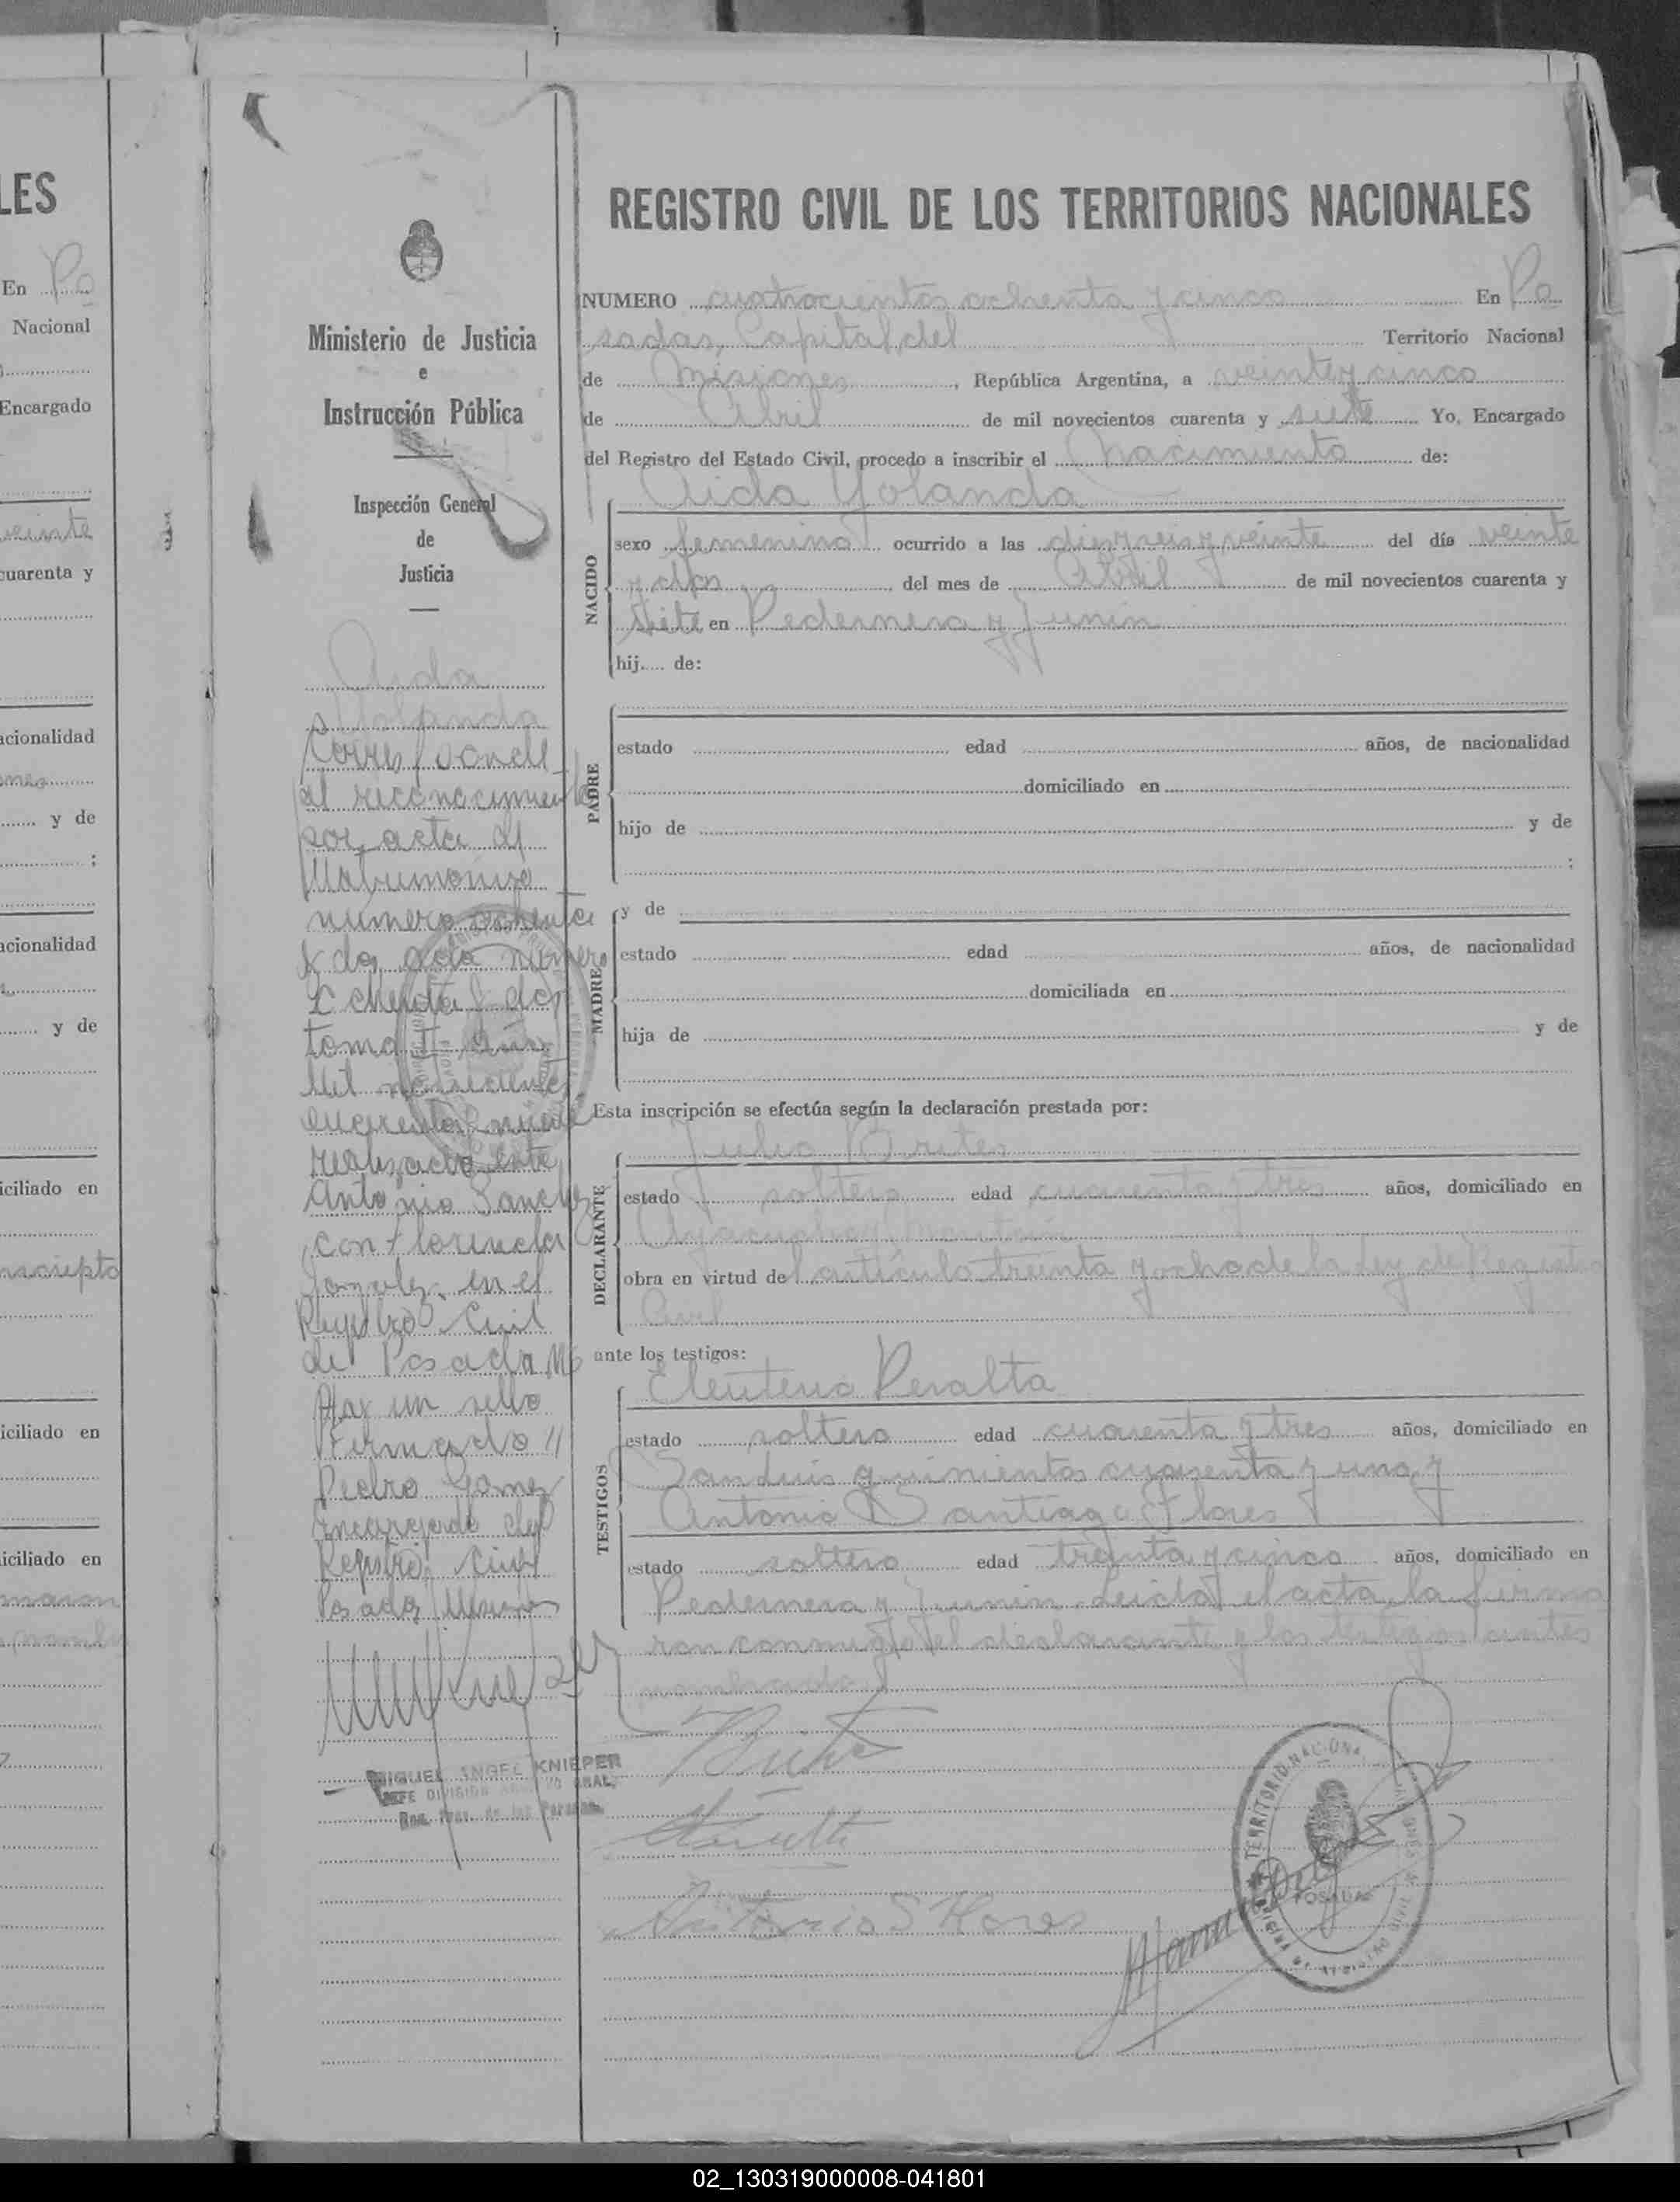 LES
En Po
Nacional
Encargado
veinte
cuarenta y
acionalidad
y de
;
acionalidad
y de
iciliado en
inscripto
iciliado en
iciliado en
Ministerio de Justicia
e
Instrucción Pública
Inspección General
de
Justicia
Aida
Yolanda
Corresponde
al reconocimiento
por acta de
Matrimonio
número ochenta
y dos acta número
ochenta y dos
tomo II año
Mil novecientos
cuarenta y nueve
realizado entre
Antonio Sanchez
con Florinda
Gonzalez en el
Registro Civil
de Posadas Ms
Hay un sello
Firmado //
Pedro Gomez
encargado del
Registro Civil
Posadas Misiones
MIGUEL ANGEL KNIEPER
JEFE DIVISION ARCHIVO GRAL.
Reg. Prov. de las Personas
REGISTRO CIVIL DE LOS TERRITORIOS NACIONALES
NUMERO cuatrocientos ochenta y cinco En Po
sadas, Capital del Territorio Nacional
de Misiones, República Argentina, a veinte y cinco
de Abril de mil novecientos cuarenta y siete Yo, Encargado
del Registro del Estado Civil, procedo a inscribir el Nacimiento de:
Aida Yolanda
NACIDO
sexo femenino ocurrido a las diez y seis y veinte del día veinte
y dos del mes de Abril de mil novecientos cuarenta y
siete en Pedernera y Junin
hij.... de:
PADRE
estado edad años, de nacionalidad
domiciliado en
hijo de y de
;
MADRE
y de
estado edad años, de nacionalidad
domiciliada en
hija de y de
Esta inscripción se efectúa según la declaración prestada por:
Julio Brites
DECLARANTE
estado soltero edad cuarenta y tres años, domiciliado en
Ayacucho
obra en virtud del artículo treinta y ocho de la Ley de Registro
Civil
ante los testigos:
TESTIGOS
Eleuterio Peralta
estado soltero edad cuarenta y tres años, domiciliado en
San Luis quinientos cuarenta y uno, y
Antonio Santiago Flores
estado soltero edad treinta y cinco años, domiciliado en
Pedernera y Junin. Leida el acta, la firma
ron conmigo el declarante y los testigos antes
nombrados
Antonio S Flores
TERRITORIO NACIONAL
POSADAS
02_130319000008-041801